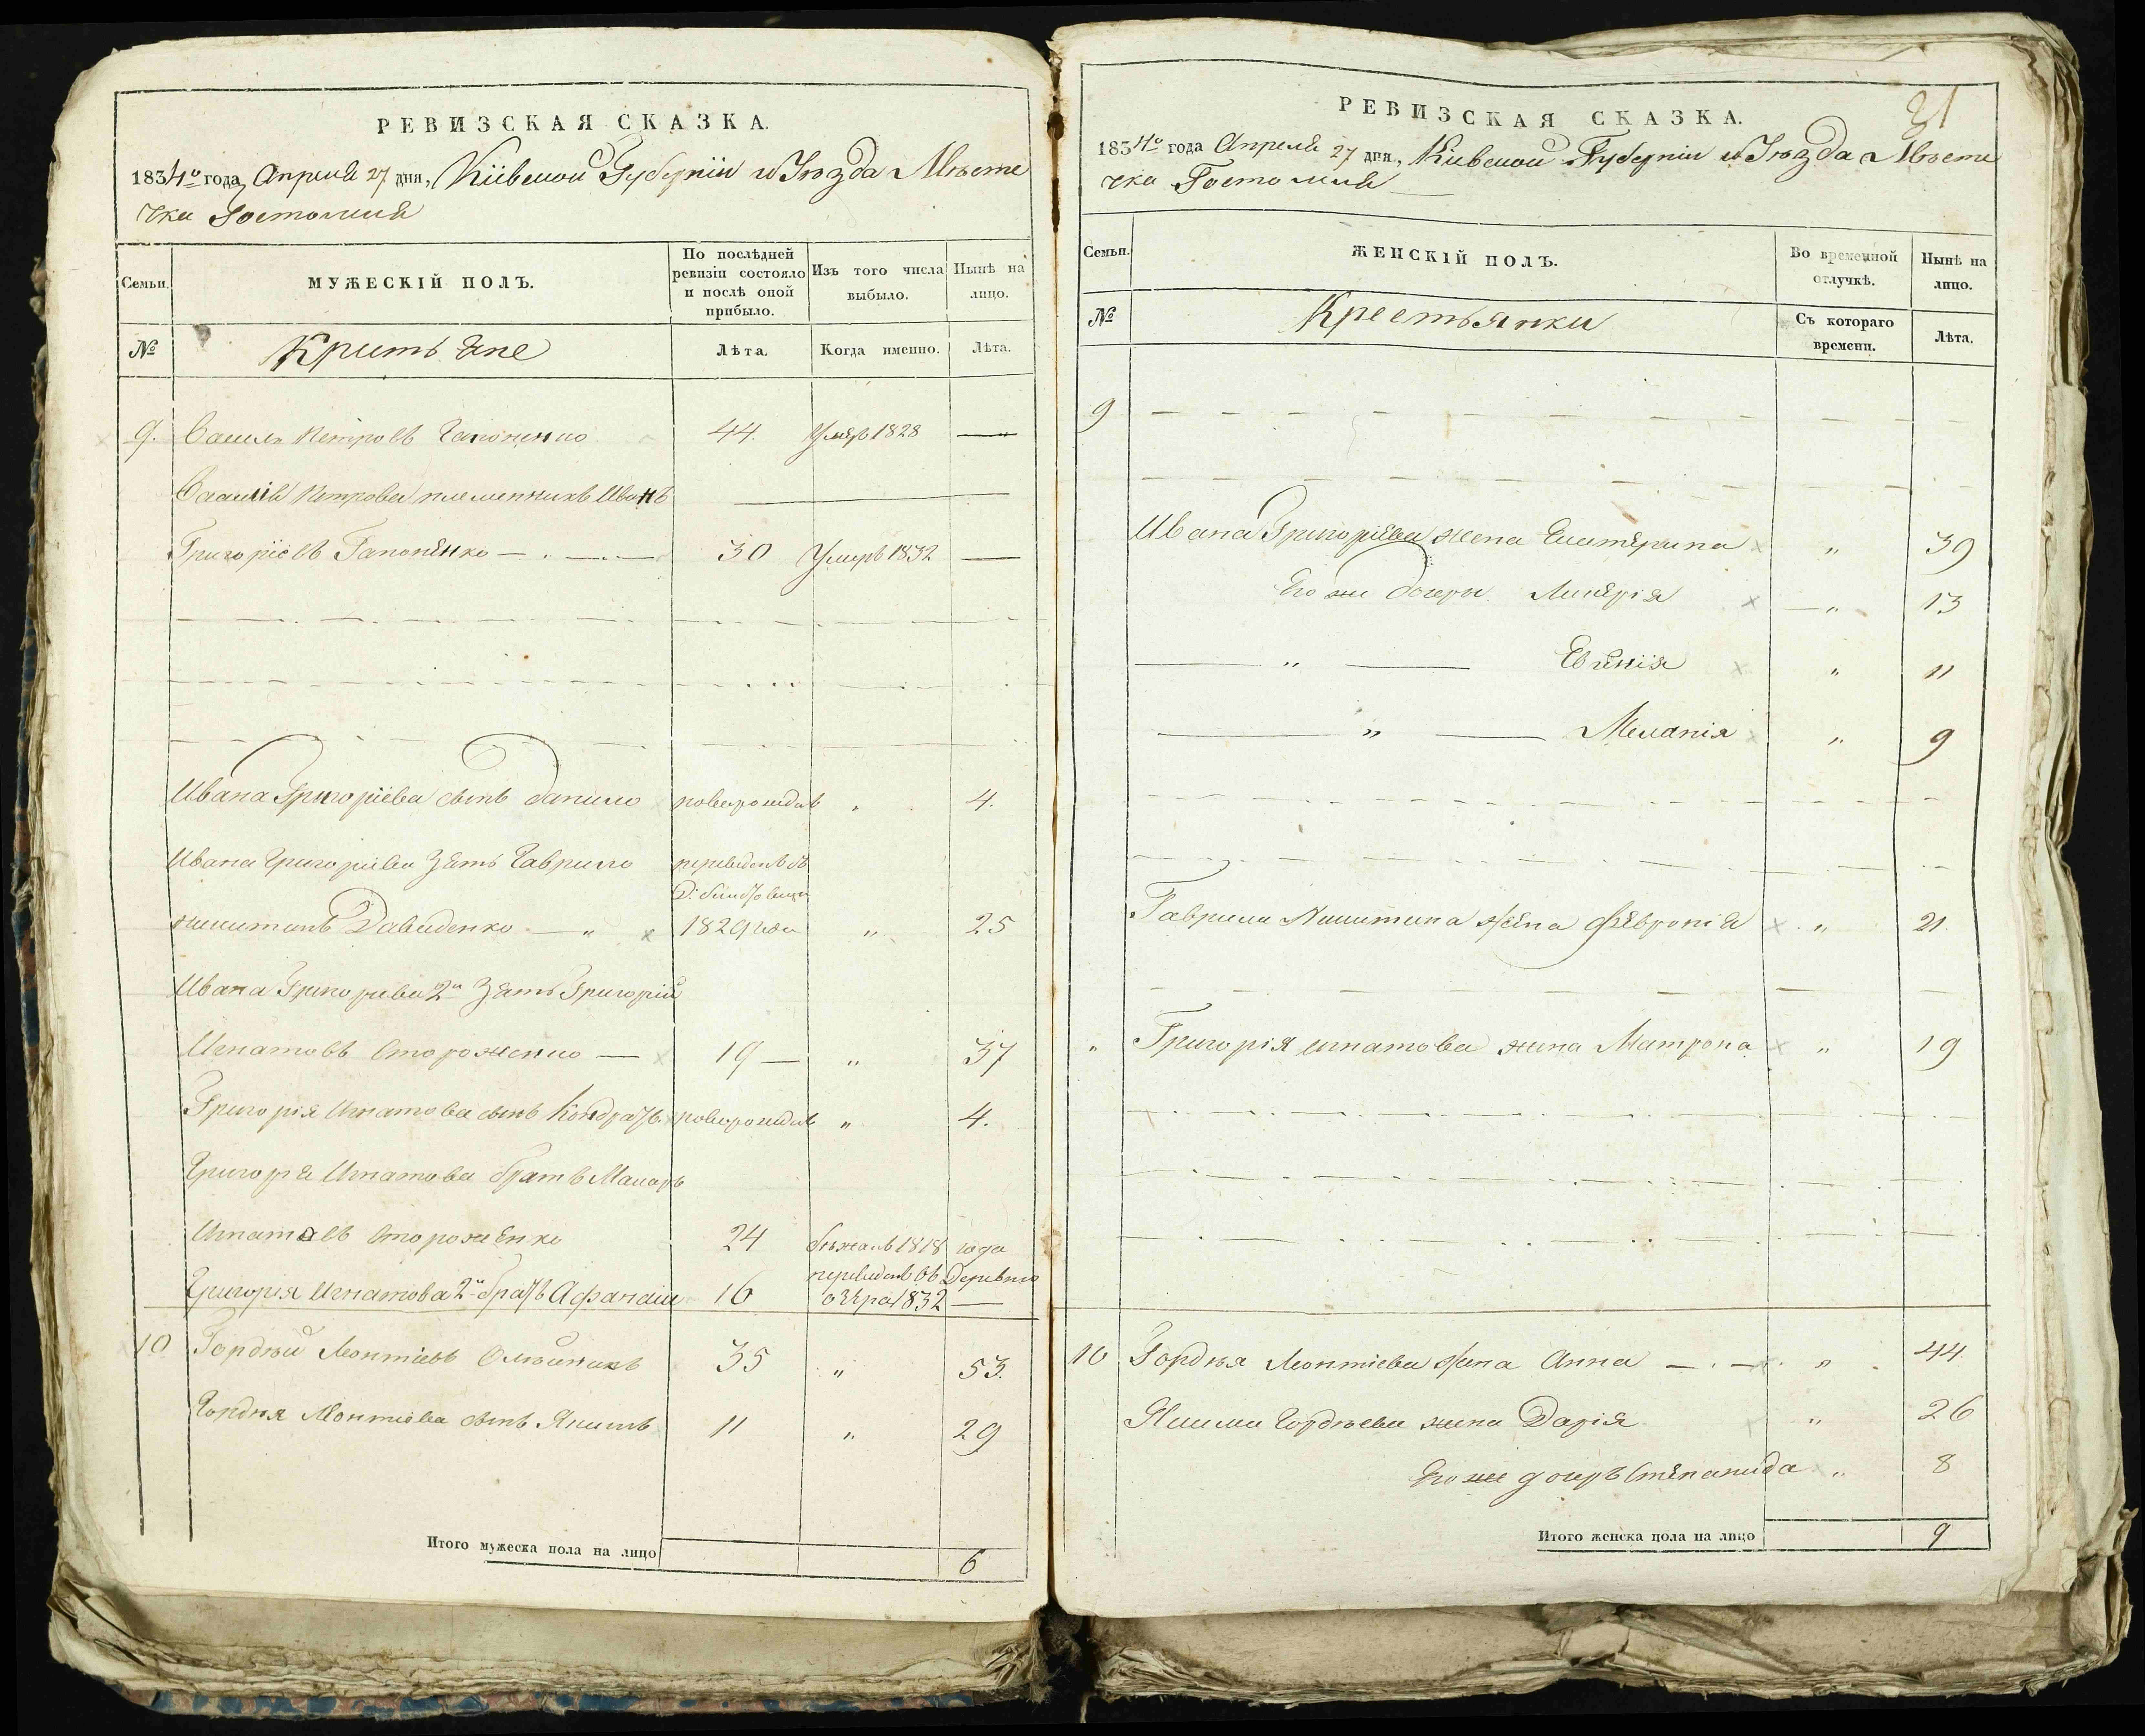 РЕВИЗСКАЯ СКАЗКА.
1834го года Апреля 27 дня, Кіівской Губерніи и Уезда Месте
чка Гостомля
Семьи.
МУЖЕСКІЙ ПОЛЪ.
По послѣдней ревизіи состояло и послѣ оной прибыло.
Изъ того числа выбыло.
Нынѣ на лицо.
№
Крестьяне
Лѣта.
Когда именно.
Лѣта.
9. Василь Петровъ Гапоненко 44. Умеръ 1828 —
Василія Петрова племенникъ Иванъ
Григоріевъ Гапоненко — 30 Умеръ 1832 —
Ивана Григоріева сынъ Данило новорожденъ „ 4.
Ивана Григоріева Зять Гаврило переведенъ съ
Д:
Никитинъ Давиденко — „ 1829 года „ 25
Ивана Григоріева 2й Зять Григорій
Игнатовъ Стороженко — 19 — „ 37
Григорія Игнатова сынъ Кондратъ новорожденъ „ 4.
Григорія Игнатова братъ Макаръ
Игнатовъ Стороженко 24 бѣжалъ 1818 года
Григорія Игнатова 2й братъ Афанасій 16 переведенъ въ Деревню
озера 1832 —
10 Гордѣй Леонтіевъ Олейникъ 35 „ 53.
Гордѣя Леонтіева сынъ Якимъ 11 „ 29
Итого мужеска пола на лицо 6
31
РЕВИЗСКАЯ СКАЗКА.
1834го года Апреля 27 дня, Киевской Губерніи и Уезда Месте
чка Гостомля
Семьи.
ЖЕНСКІЙ ПОЛЪ.
Во временной отлучкѣ.
Нынѣ на лицо.
№
Крестьянки
Съ котораго времени.
Лѣта.
9
Ивана Григоріева жена Екатерина „ 39
Его же дочери Ликерія — „ 13
„ Евгенія „ 11
„ Меланія „ 9
Гаврила Никитина жена Февронія „ 21.
„ Григорія Игнатова жена Матрона „ 19
10 Гордѣя Леонтіева жена Анна — „ 44.
Якима Гордѣева жена Дарія „ 26
Его же дочерь Степанида „ 8
Итого женска пола на лицо 9